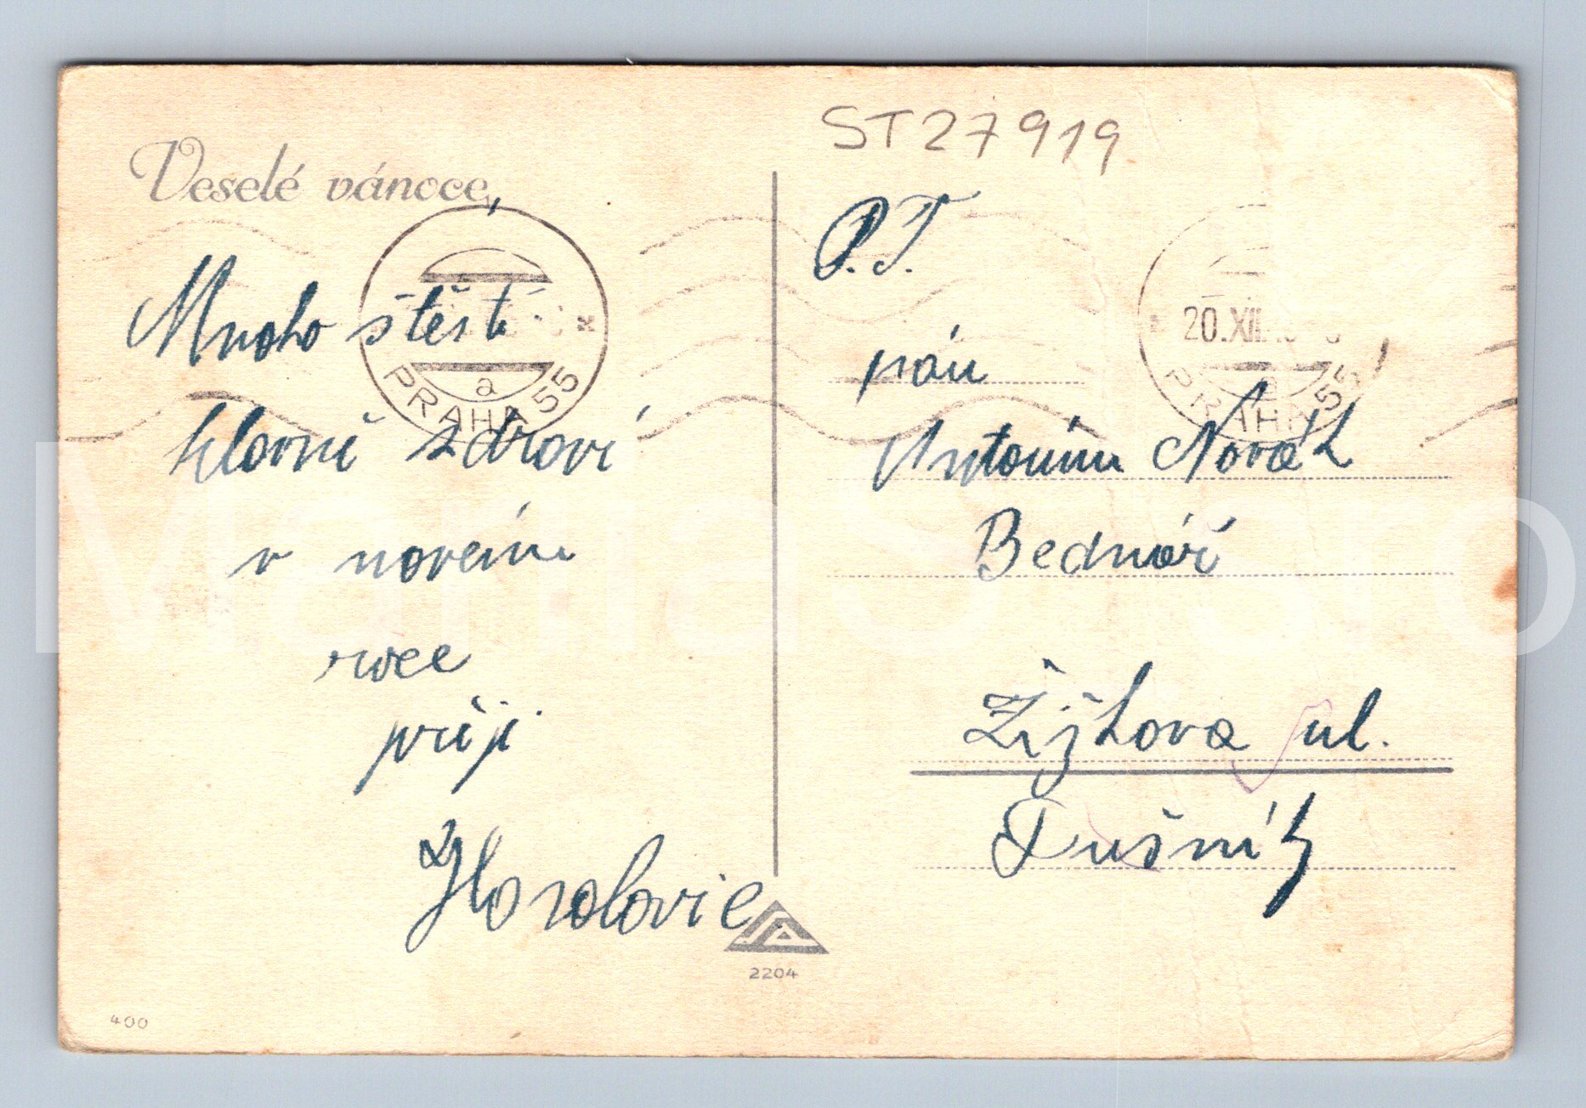 Veselé vánoce,
Mnoho štěstí
hlavně zdraví
v novém
roce
přeji
ST27919
P.T.
pán
Antonín Novák
Bednář
Žižkova ul.
Dušník
PRAHA 55
a
20.XII.
PRAHA 55
2204
400
ManiaStiro